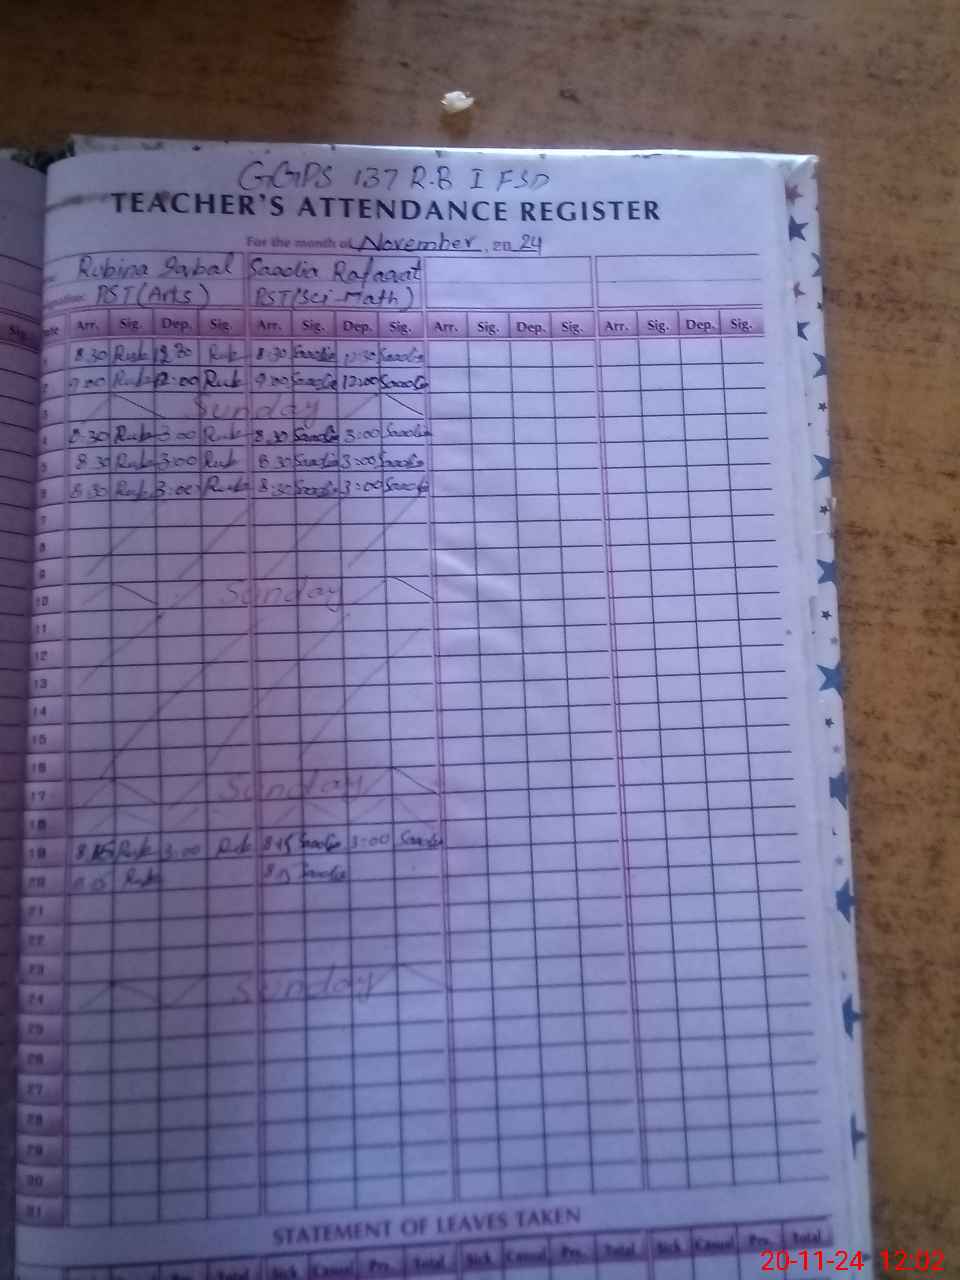 GGPS 137 R.B I FSD
TEACHER'S ATTENDANCE REGISTER
For the month of November, 20 24
Rubina Iqbal Saadia Rafaqat
PST (Arts) PST (Sci-Math)
Sig. Arr. Sig. Dep. Sig. Arr. Sig. Dep. Sig. Arr. Sig. Dep. Sig. Arr. Sig. Dep. Sig.
1 8:30 Rub 12 30 Rub 8:30 Saadia 12:30 Saadia
2 9:00 Rub 12:00 Rub 9:00 Saadia 12:00 Saadia
3 Sunday
4 8:30 Rub 3:00 Rub 8:30 Saadia 3:00 Saadia
5 8:30 Rub 3:00 Rub 8:30 Saadia 3:00 Saadia
6 8:30 Rub 3:00 Rub 8:30 Saadia 3:00 Saadia
7
8
9
10 Sunday
11
12
13
14
15
16
17 Sunday
18
19 8:15 Rub 3:00 Rub 8:15 Saadia 3:00 Saadia
20 Rub Saadia
21
22
23
24 Sunday
25
26
27
28
29
30
31
STATEMENT OF LEAVES TAKEN
Sick Casual Prv. Total Sick Casual Prv. Total Sick Casual Prv. Total
20-11-24 12:02